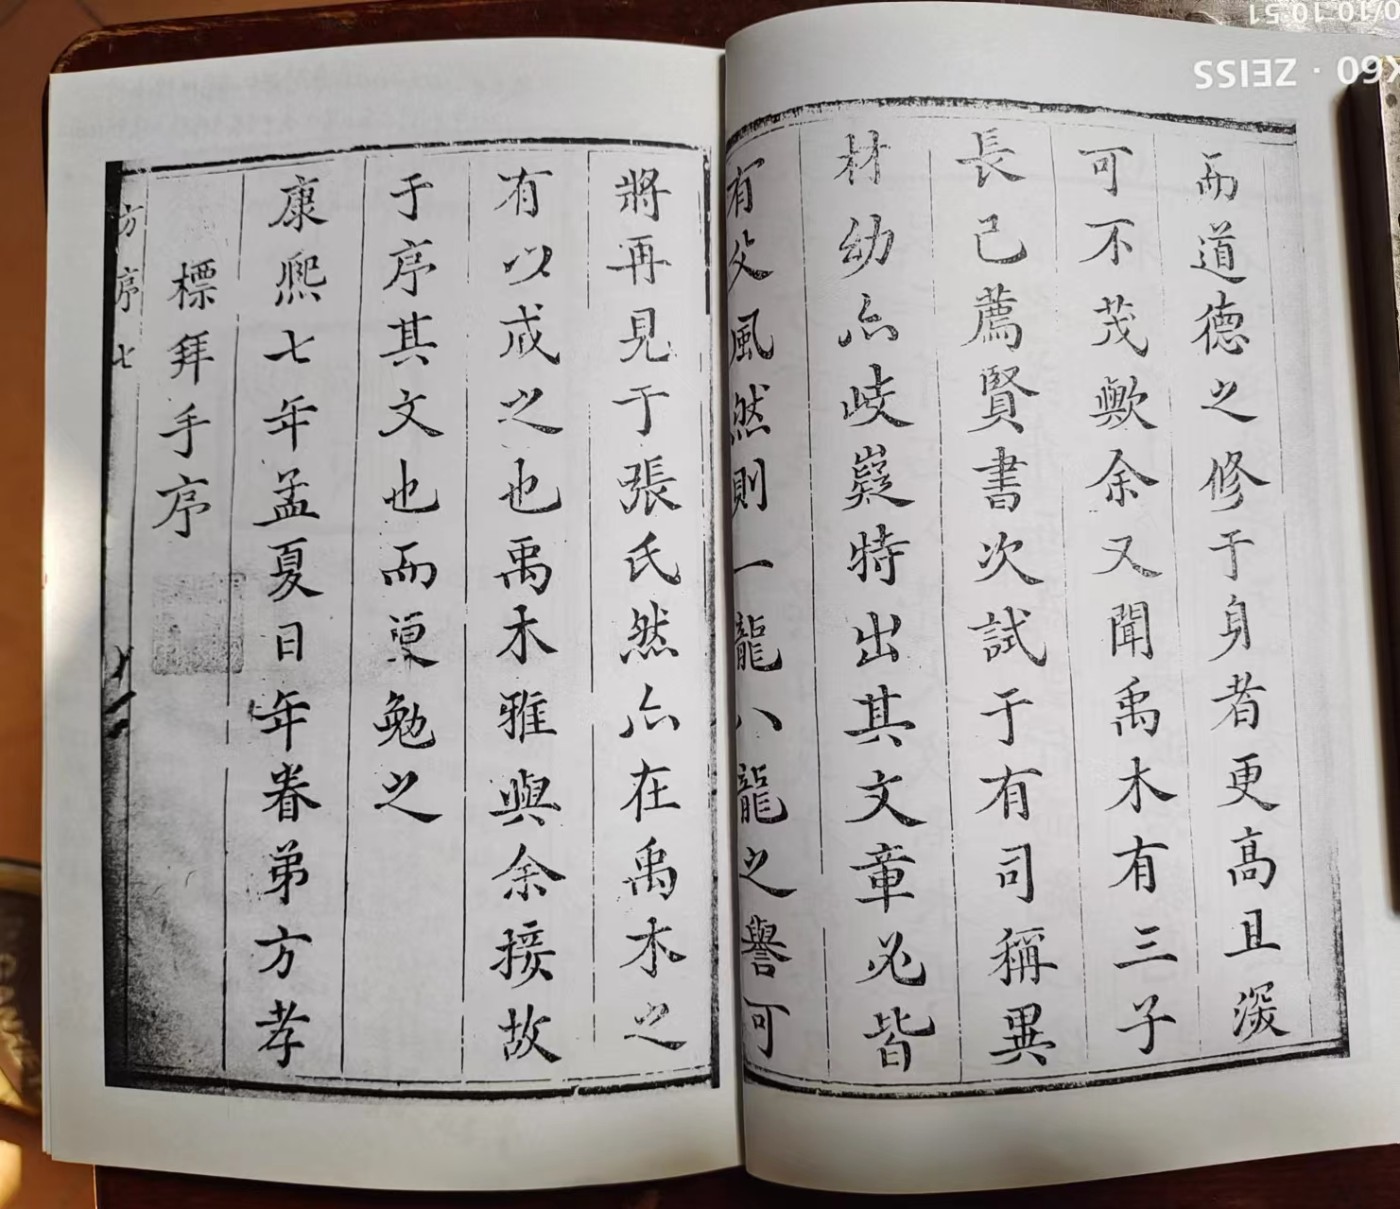 而道德之修于身者更高且深
可不茂歟余又聞禹木有三子
長己薦賢書次試于有司稱異
材幼亦岐嶷特出其文章必皆
有父風然則一龍八龍之譽可
將再見于張氏然亦在禹木之
有以成之也禹木雅與余接故
于序其文也而更勉之
康熙七年孟夏日年眷弟方孝
標拜手序
方序 七
ZEISS